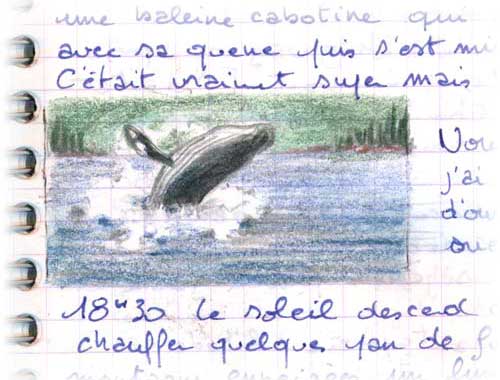 une baleine cabotine qui
avec sa queue puis s'est mi
C'était vraiment super mais
j'ai
18h30 le soleil descend
chauffer quelques pan de